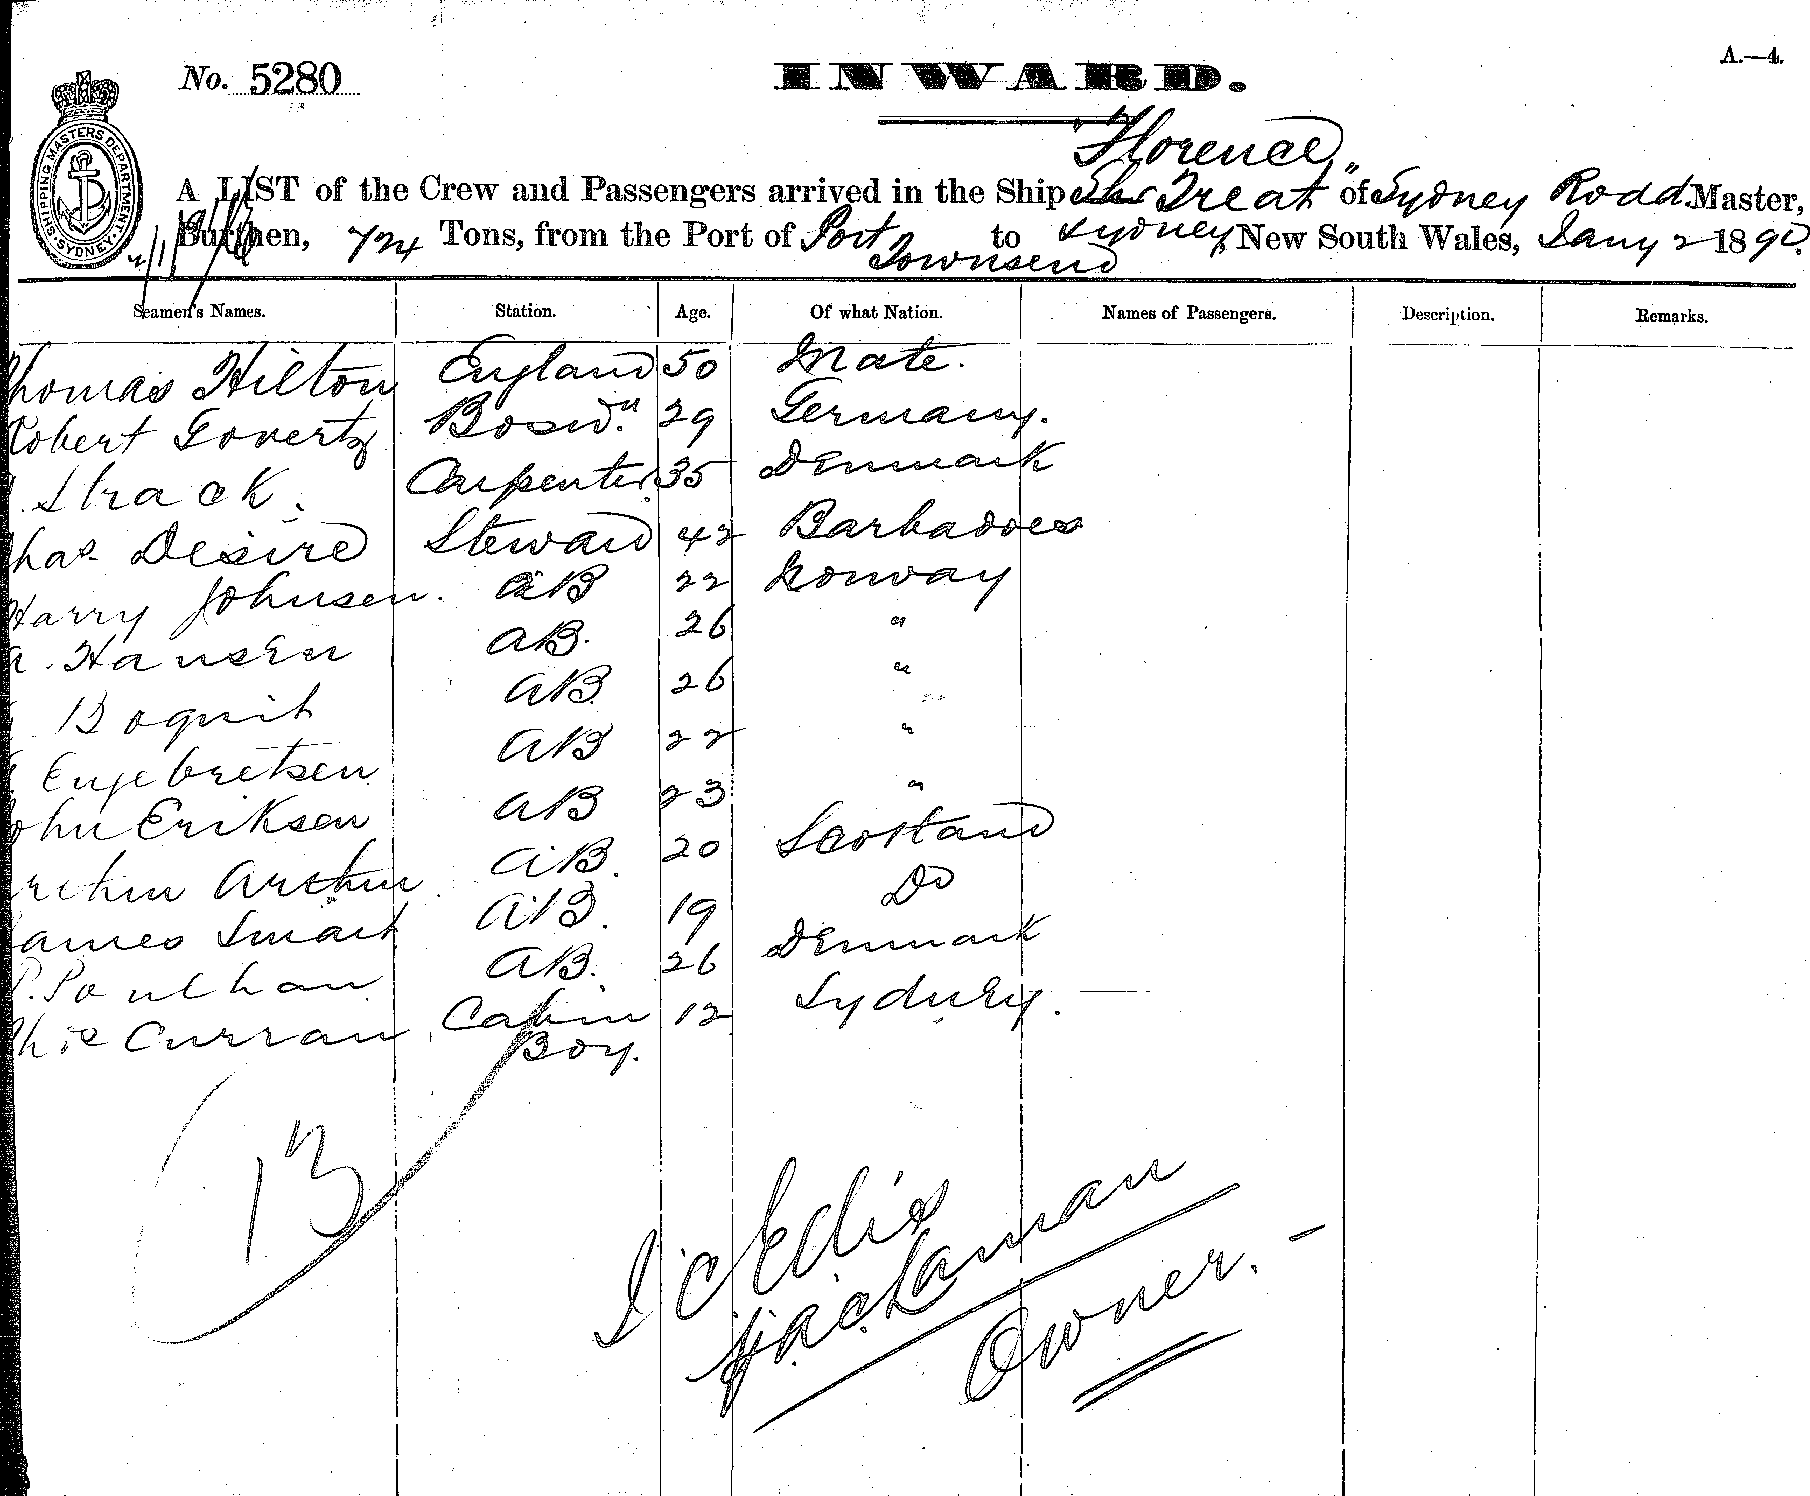 No. 5280
INWARD.
A.—4.
SHIPPING MASTERS DEPARTMENT. SYDNEY.
"Florence
A LIST of the Crew and Passengers arrived in the Ship Treat" of Sydney Rodd Master,
Burthen, 724 Tons, from the Port of Port Townsend to Sydney, New South Wales, Jany 2 1890.
Seamen's Names. Station. Age. Of what Nation. Names of Passengers. Description. Remarks.
Thomas Hilton England 50 Mate.
Robert Govertz Bosw.n 29 Germany.
Strack. Carpenter 35 Denmark
Chas Desire Steward 42 Barbadoes
Harry Johnsen. AB 22 Norway
A. Hansen AB. 26 "
Boquit AB 26 "
Engebretsen AB 22 "
John Eriksen AB 23 "
Archur AB. 20 Scotland
James Smart AB. 19 Do
P. Poulhan AB. 26 Denmark
Curran Cabin Boy. 12 Sydney. —
13
Edie
Jackaman
Owner. —